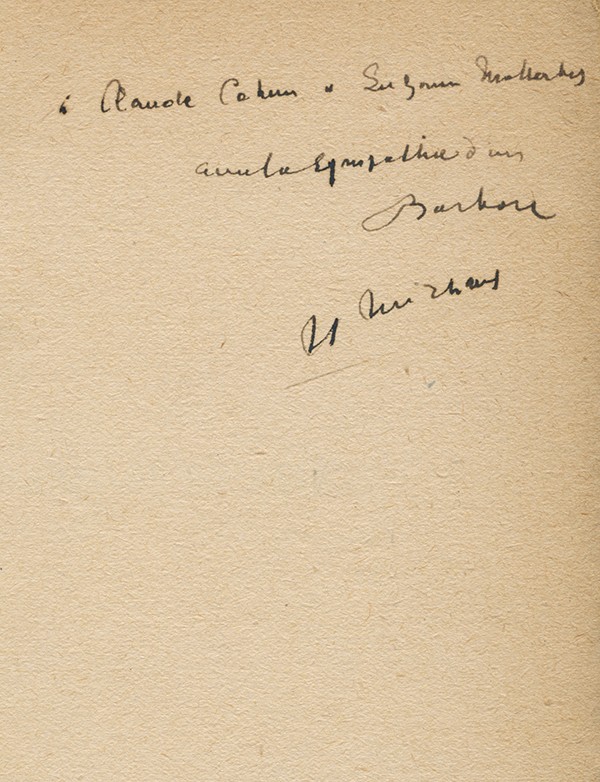 à Claude Cahun & Suzanne Malherbe
avec la sympathie d'un
Barbare
H Michaux